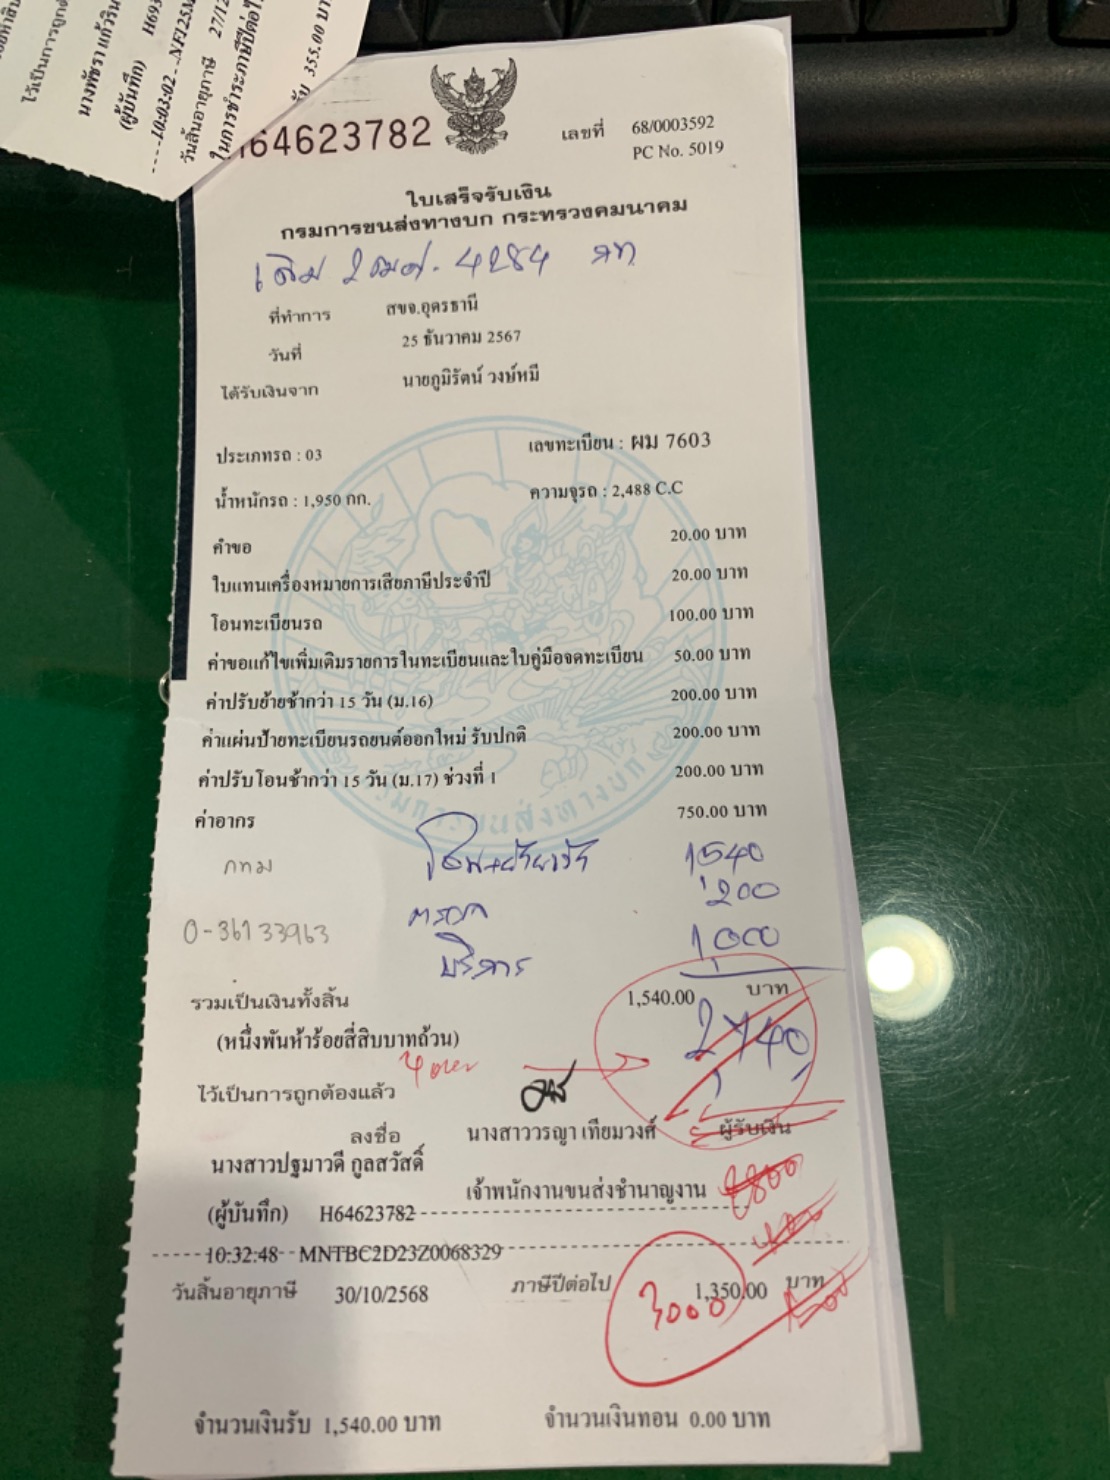 นางพัชรา แก้ว
(ผู้บันทึก) H693
10:03:02
วันสิ้นอายุภาษี 27/12
ในการชำระภาษีปีต่อไ
355.00
64623782
เลขที่ 68/0003592
PC No. 5019
ใบเสร็จรับเงิน
กรมการขนส่งทางบก กระทรวงคมนาคม
เดิม 2ฒศ-4284 กท
ที่ทำการ สขจ.อุดรธานี
วันที่ 25 ธันวาคม 2567
ได้รับเงินจาก นายภูมิรัตน์ วงษ์หมี
ประเภทรถ : 03 เลขทะเบียน : ผม 7603
น้ำหนักรถ : 1,950 กก. ความจุรถ : 2,488 C.C
คำขอ 20.00 บาท
ใบแทนเครื่องหมายการเสียภาษีประจำปี 20.00 บาท
โอนทะเบียนรถ 100.00 บาท
ค่าขอแก้ไขเพิ่มเติมรายการในทะเบียนและใบคู่มือจดทะเบียน 50.00 บาท
ค่าปรับย้ายช้ากว่า 15 วัน (ม.16) 200.00 บาท
ค่าแผ่นป้ายทะเบียนรถยนต์ออกใหม่ รับปกติ 200.00 บาท
ค่าปรับโอนช้ากว่า 15 วัน (ม.17) ช่วงที่ 1 200.00 บาท
ค่าอากร 750.00 บาท
กทม 1,540
ตรวจ 200
0-36133963
บริการ 1,000
รวมเป็นเงินทั้งสิ้น 1,540.00 บาท
(หนึ่งพันห้าร้อยสี่สิบบาทถ้วน) 2,740
ไว้เป็นการถูกต้องแล้ว
ลงชื่อ นางสาววรญา เทียมวงศ์ ผู้รับเงิน
นางสาวปฐมาวดี กูลสวัสดิ์
เจ้าพนักงานขนส่งชำนาญงาน
(ผู้บันทึก) H64623782
10:32:48 MNTBC2D23Z0068329
วันสิ้นอายุภาษี 30/10/2568 ภาษีปีต่อไป 1,350.00 บาท
3000
จำนวนเงินรับ 1,540.00 บาท จำนวนเงินทอน 0.00 บาท